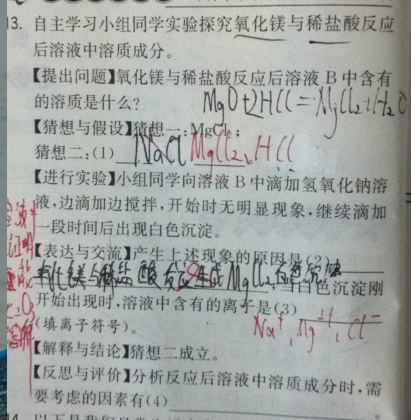 13. 自主学习小组同学实验探究氧化镁与稀盐酸反应
后溶液中溶质成分。
【提出问题】氧化镁与稀盐酸反应后溶液 B 中含有
的溶质是什么? MgO+2HCl=MgCl2+H2O
【猜想与假设】猜想一:MgCl2;
猜想二:(1) NaCl MgCl2、HCl
【进行实验】小组同学向溶液 B 中滴加氢氧化钠溶
液,边滴加边搅拌,开始时无明显现象,继续滴加
一段时间后出现白色沉淀。
【表达与交流】产生上述现象的原因是(2)
氧化镁与稀盐酸反应生成MgCl2 白色沉淀刚
开始出现时,溶液中含有的离子是(3)
(填离子符号)。 Na+,Mg2+,Cl-
【解释与结论】猜想二成立。
【反思与评价】分析反应后溶液中溶质成分时,需
要考虑的因素有(4)